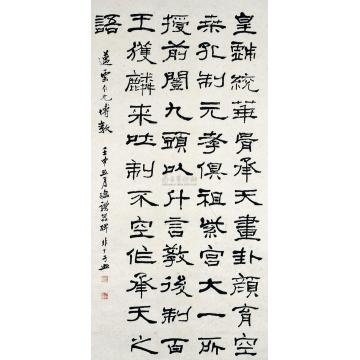 皇戲統華胥承天畫卦顏育空
桑孔制元孝俱祖紫宮大一所
授前闓九頭以什言教後制百
王獲麟來吐制不空作承天之
語
仁兄博教 壬申五月臨禮器碑